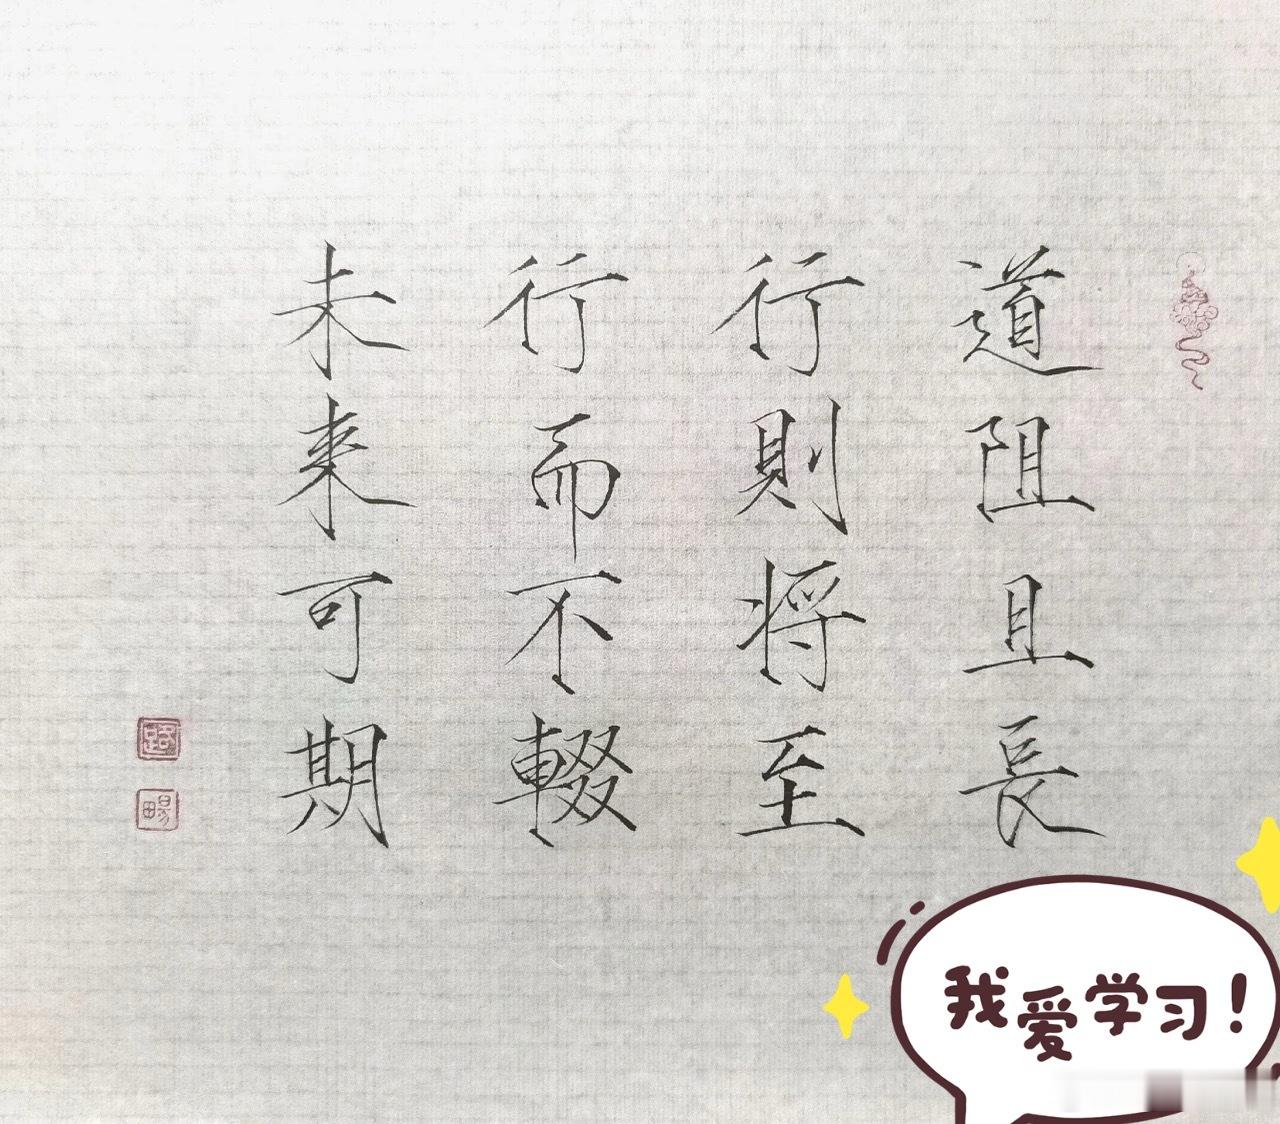 道阻且長
行則将至
行而不輟
未来可期
路
暘
我爱学习!